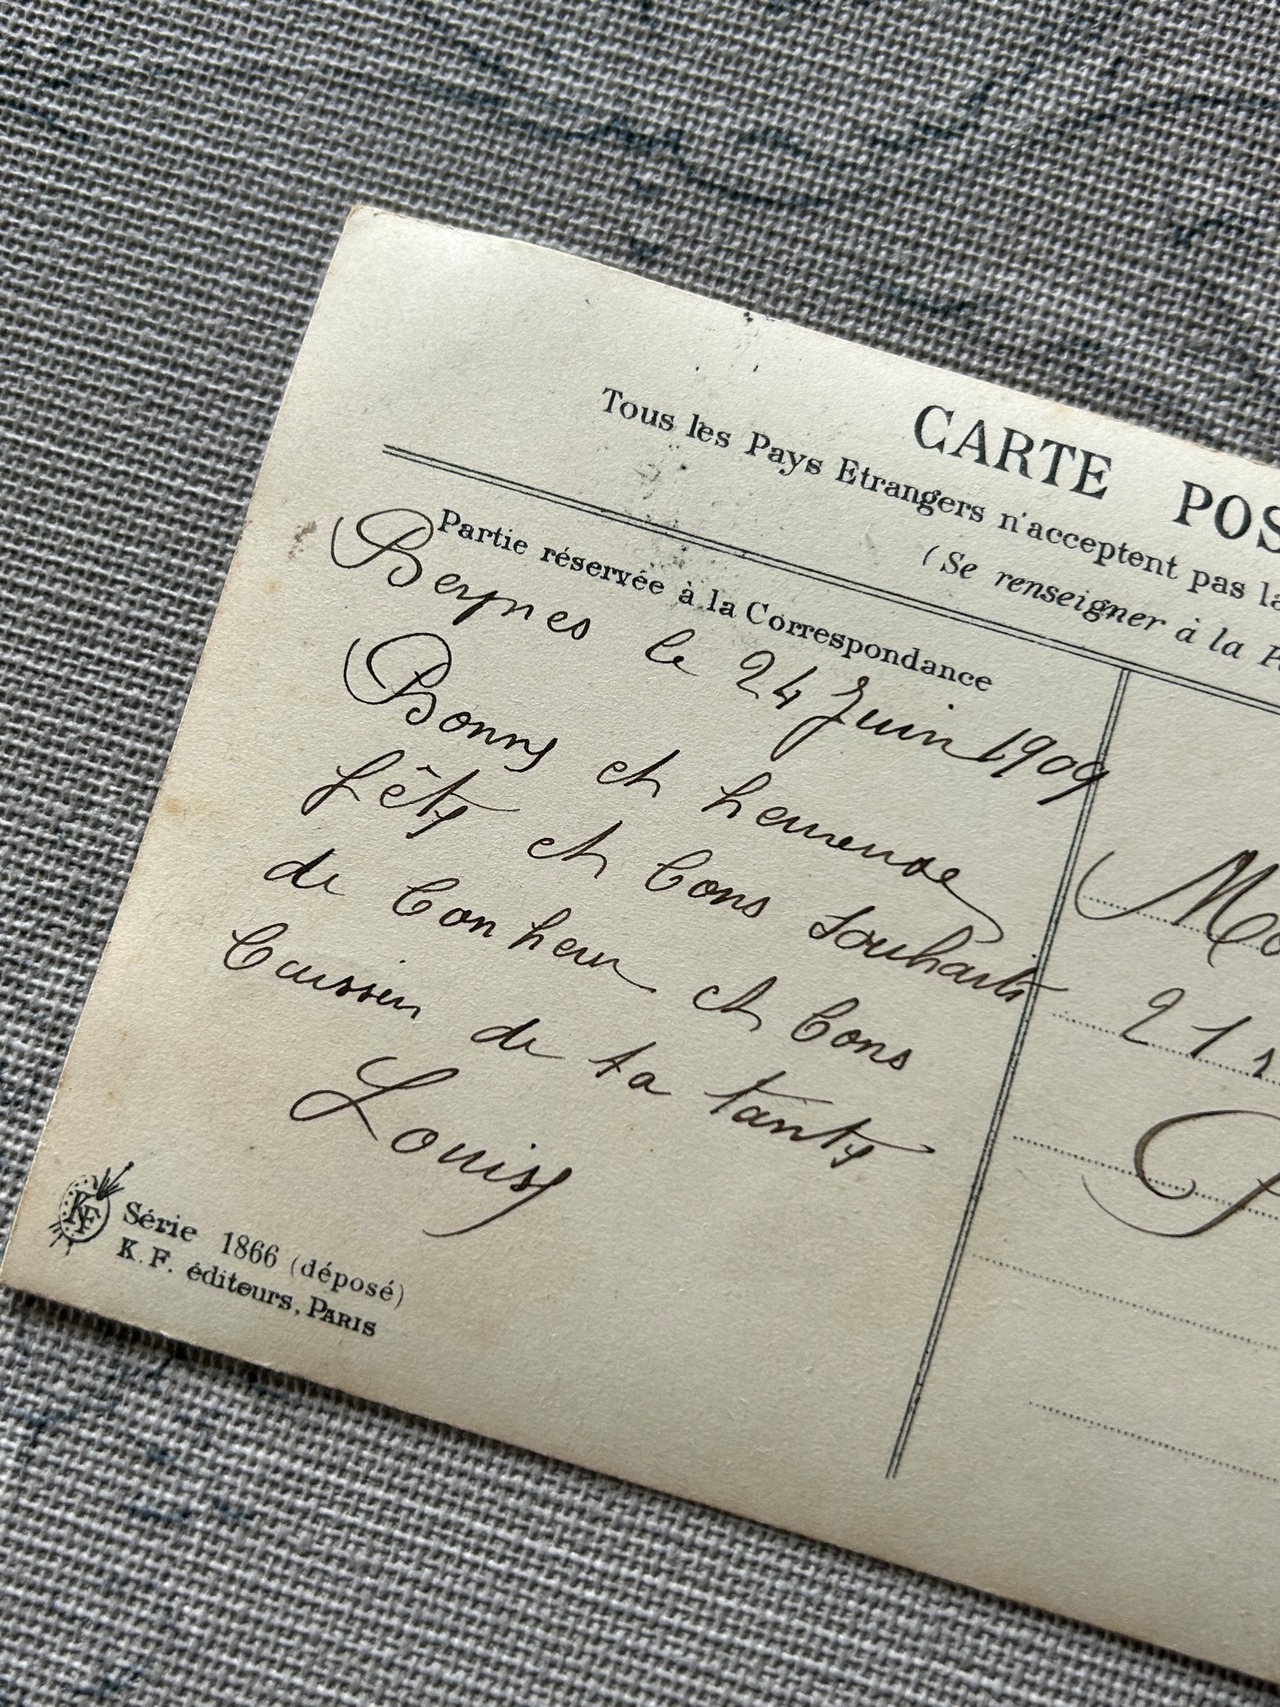 CARTE POS
Tous les Pays Etrangers n'acceptent pas la
(Se renseigner à la P
Partie réservée à la Correspondance
Beynes le 24 Juin 1909
Bonne et heureuse
fête et bons souhaits
de bonheur et bons
Baisers de ta tante
Louise
21
KF
Série 1866 (déposé)
K. F. éditeurs, PARIS